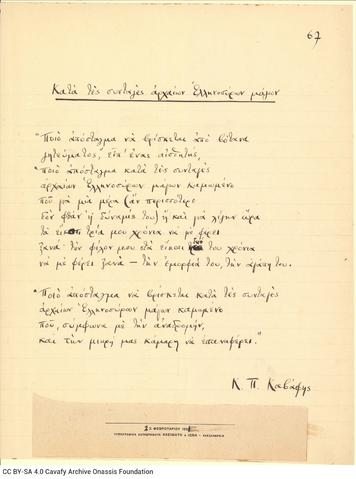 67
Κατά τές συνταγές αρχαίων Ελληνοσύρων μάγων
"Ποιό απόσταγμα νά βρίσκεται από βότανα
γητεύματος," είπ' ένας αισθητής,
"ποιό απόσταγμα κατά τές συνταγές
αρχαίων Ελληνοσύρων μάγων καμωμένο
πού γιά μιά μέρα (άν περισσότερο
δέν φθάν' η δύναμίς του) ή καί γιά λίγην ώρα
τά είκοσι τρία μου χρόνια νά μέ φέρει
ξανά· τόν φίλον μου στά είκοσι δυό του χρόνια
νά μέ φέρει ξανά — τήν εμορφιά του, τήν αγάπη του.
"Ποιό απόσταγμα νά βρίσκεται κατά τές συνταγές
αρχαίων Ελληνοσύρων μάγων καμωμένο
πού, σύμφωνα μέ τήν αναδρομήν,
καί τήν μικρή μας κάμαρη νά επαναφέρει."
Κ. Π. Καβάφης
23 ΦΕΒΡΟΥΑΡΙΟΥ 1931
ΤΥΠΟΓΡΑΦΙΚΑ ΚΑΤΑΣΤΗΜΑΤΑ ΚΑΣΙΜΑΤΗ & ΙΩΝΑ - ΑΛΕΞΑΝΔΡΕΙΑ
CC BY-SA 4.0 Cavafy Archive Onassis Foundation